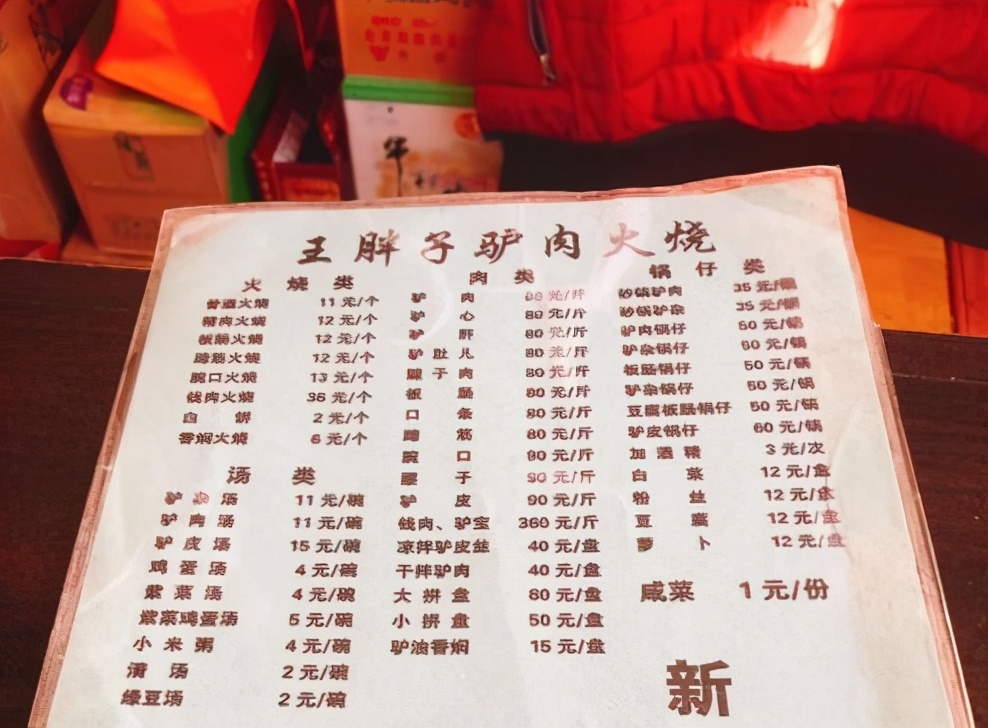 王胖子驴肉火烧
火烧类
普通火烧 11元/个
精肉火烧 12元/个
板肠火烧 12元/个
蹄筋火烧 12元/个
腕口火烧 13元/个
钱肉火烧 36元/个
白饼 2元/个
香焖火烧 6元/个
汤类
驴杂汤 11元/碗
驴肉汤 11元/碗
驴皮汤 15元/碗
鸡蛋汤 4元/碗
紫菜汤 4元/碗
紫菜鸡蛋汤 5元/碗
小米粥 4元/碗
清汤 2元/碗
绿豆汤 2元/碗
肉类
驴肉
驴心 80元/斤
驴肝 80元/斤
驴肚儿 80元/斤
腱子肉 80元/斤
板肠 80元/斤
口条 80元/斤
蹄筋 80元/斤
腕口 80元/斤
腰子 90元/斤
驴皮 90元/斤
钱肉、驴宝 360元/斤
凉拌驴皮丝 40元/盘
干拌驴肉 40元/盘
大拼盘 80元/盘
小拼盘 50元/盘
驴油香焖 15元/盘
锅仔类
砂锅驴肉 35元/锅
砂锅驴杂 35元/锅
驴肉锅仔 50元/锅
驴杂锅仔 50元/锅
板肠锅仔 50元/锅
驴杂锅仔 50元/锅
豆腐板肠锅仔 50元/锅
驴皮锅仔 60元/锅
加酒精 3元/次
白菜 12元/盘
粉丝 12元/盘
豆腐 12元/盘
萝卜 12元/盘
咸菜 1元/份
新